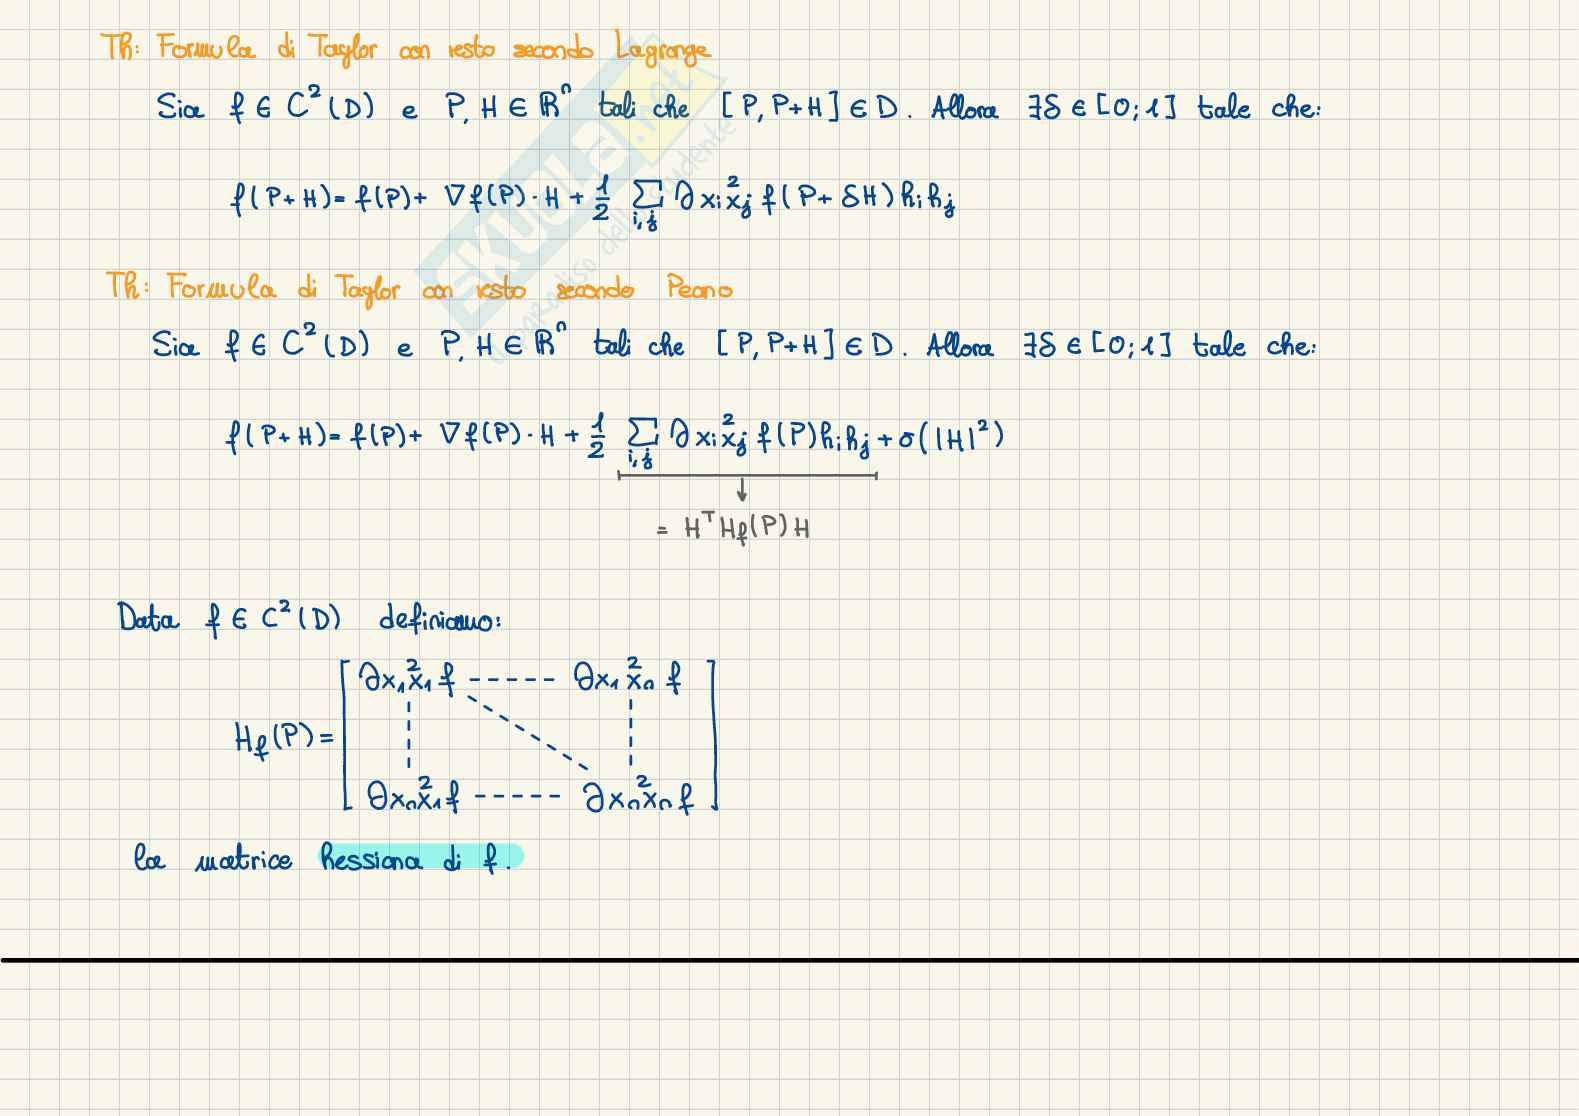 Th: Formula di Taylor con resto secondo Lagrange
Sia f ∈ C²(D) e P, H ∈ ℝⁿ tali che [P, P+H] ∈ D. Allora ∃δ ∈ [0; 1] tale che:
f(P+H) = f(P) + ∇f(P) · H + 1/2 ∑_{i,j} ∂²x_i x_j f(P + δH) h_i h_j
Th: Formula di Taylor con resto secondo Peano
Sia f ∈ C²(D) e P, H ∈ ℝⁿ tali che [P, P+H] ∈ D. Allora ∃δ ∈ [0; 1] tale che:
f(P+H) = f(P) + ∇f(P) · H + 1/2 ∑_{i,j} ∂²x_i x_j f(P) h_i h_j + o(|H|²)
= Hᵀ H_f(P) H
Data f ∈ C²(D) definiamo:
∂²x₁x₁ f ----- ∂²x₁xₙ f
H_f(P) =
∂²xₙx₁ f ----- ∂²xₙxₙ f
la matrice hessiana di f.
SKUOLA.net
il paradiso dello studente